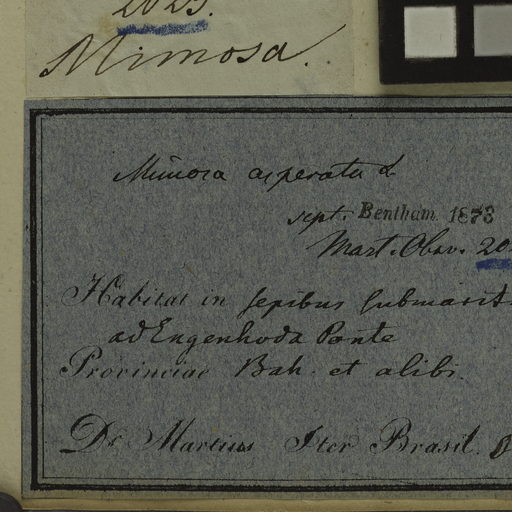 2025.
Mimosa.
Mimosa asperata L
sept. Bentham 1873
Mart. Obsv. 20
Habitat in sepibus submarit.
ad Engenho da Ponte
Provinciae Bah. et alibi.
Dr Martius Iter Brasil.